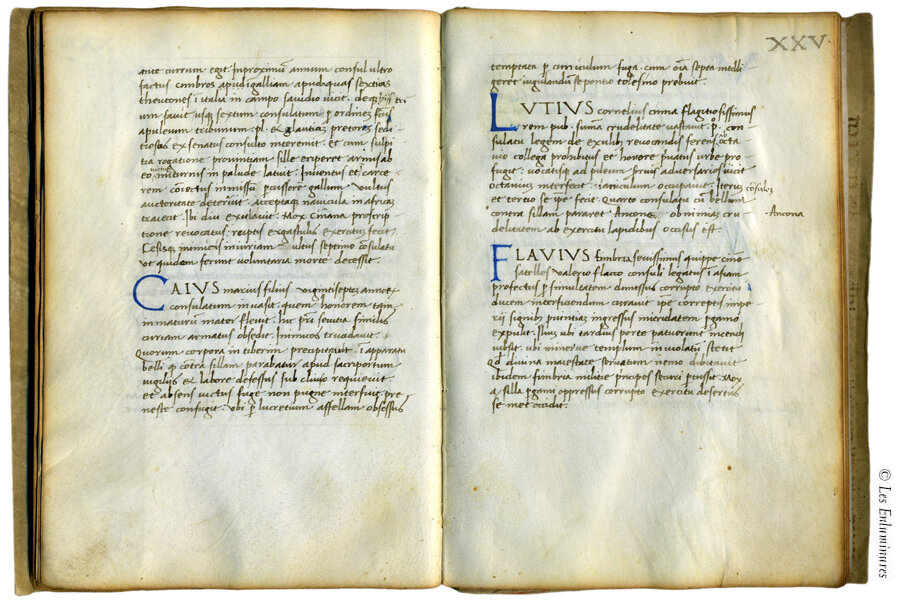 ante currum egit. Inproximum annum consul ultro
factus cimbros apud galliam apud aquas sextias
theutones i italia in campo saudio vicit. deq; iis tri
um favit usq; sextum consulatum p ordinem fcus
apuleum tribunum. pl. et glautiam pretorem sedi
tiosos ex senatus consulto interemit. et cum sulpi
tia rogatione provintiam sille eriperet armis ab
eo miturnis in palude latuit. Inventus et carce
rem coniectus in missum pcussore gallum. Vultus
auctoritate deterruit. Acceptaq; navicula in africam
traiecit. Ibi diu exulavit. Mox cinnana proscrip
tione revocatus. ruptis ex gastulis exercitum fecit.
Cesisq; inimicis iniuriam ultus septimo consulatu
Ut quidem ferunt voluntaria morte decessit.
CAIUS marcius filius viginti septem annorum
consulatum invasit. quem honorem tam
immaturum mater flevit. hic pri sevitia similis
curiam armatus obsedit. Inimicos trucidavit.
Quorum corpora in tiberim precipitavit. i apparatu
belli q contra sillam parabatur apud sacriportum
vigiliis et labore defessus sub divo requievit.
et absens victus fuge non pugne interfuit. pre
neste confugit. Ubi p lucretium affellam obsessus
XXV.
temptata p cuniculum fuga. cum oia septa intelli
geret iugulandum se pontio telesino prebuit.
LUTIUS cornelius cinna flagitiosissimus
rem pub. suma crudelitate vastavit. p. con
sulatu legem de exulib revocandis ferens. octa
vio collega prohibitus et honore pvatus urbe pro
fugit. vocatisq; ad pileum servis adversarios vicit
octavium interfecit. ianiculum occupavit. Iterum cosulem
et tertio se ipe fecit. Quarto consulatu cu bellum
contra sillam pararet Ancone ob nimiam cru
delitatem ab exercitu lapidibus occisus est.
Ancona
FLAVIUS fimbria sevissimus quippe cinne
satelles Valerio flacco consuli legatus i asiam
profectus p simultatem dimissus corrupto exercitu
ducem interficiendum curavit ipe correptis impe
rii signis pvintiam ingressus mitridatem pgamo
expulit. Ilium ubi tardius porte patuerunt incendi
iussit. ubi minerve templum inviolatum stetit
Qd divina maiestate servatum nemo dubitavit
ibidem fimbria militie principes securi pcussit. Mox
a silla pgami oppressus corrupto exercitu desertus
se met occidit.
© Les Enluminures